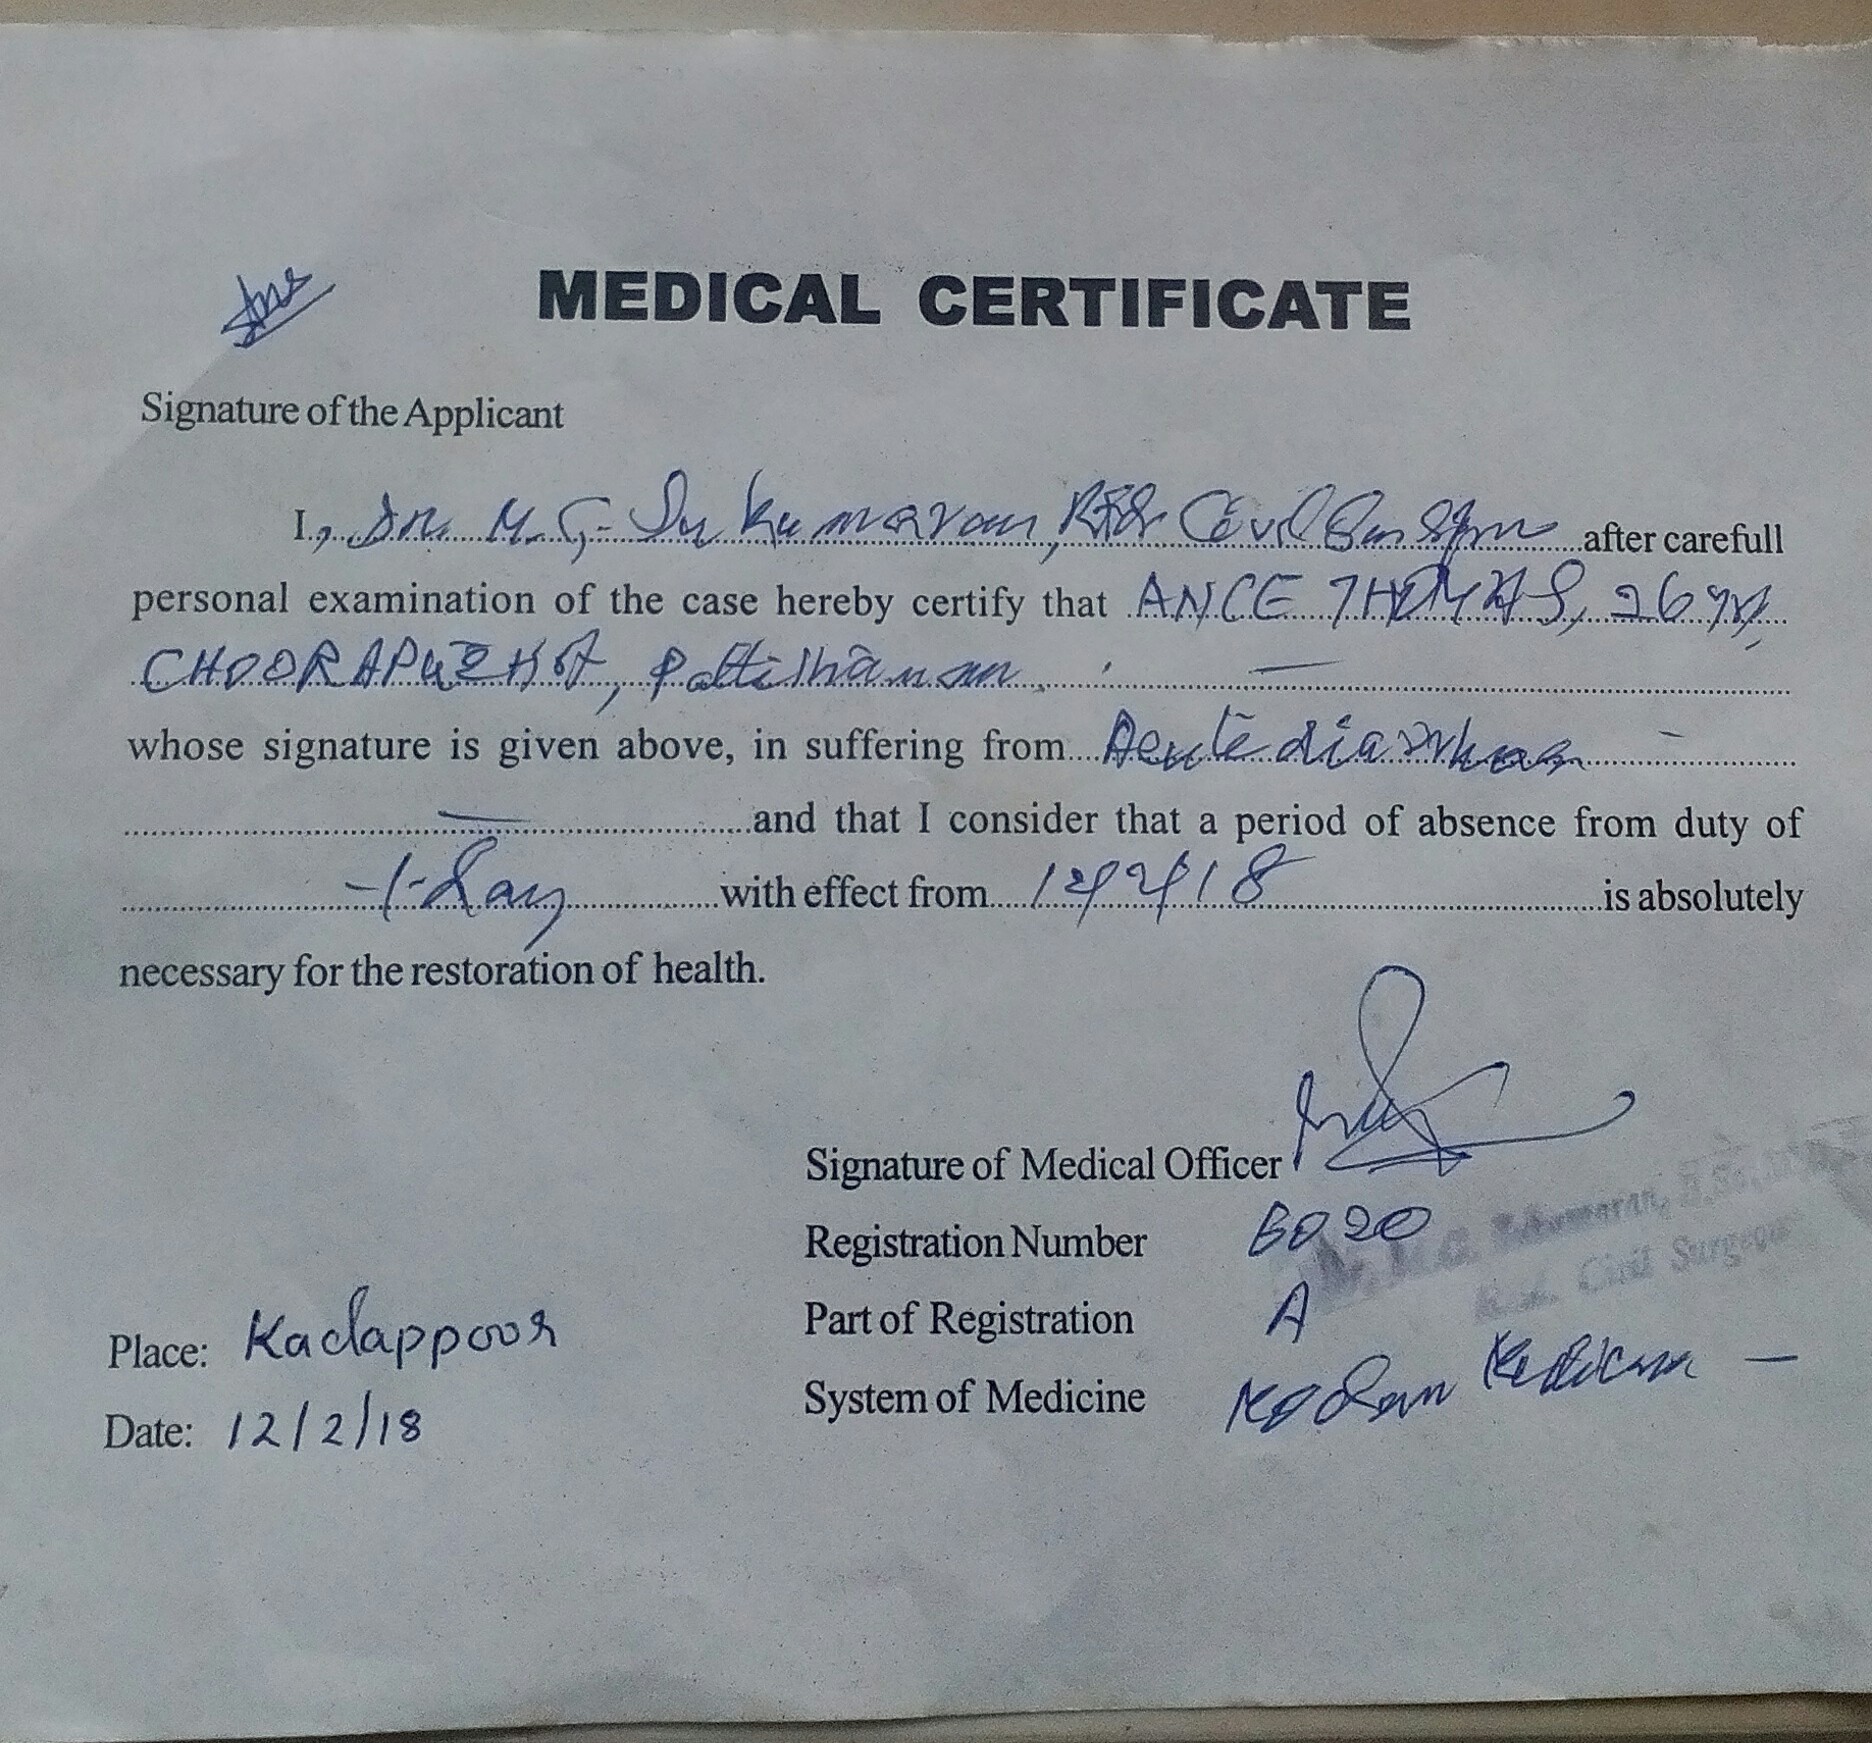 MEDICAL CERTIFICATE
Signature of the Applicant
I, Dr. M.G. Sukumaran, Rtd. Civil Surgeon after carefull
personal examination of the case hereby certify that ANCE THOMAS, 26 yrs,
CHOORAPUZHA,
whose signature is given above, in suffering from Acute diarrhoea
and that I consider that a period of absence from duty of
-1- Day with effect from 12/2/18 is absolutely
necessary for the restoration of health.
Signature of Medical Officer
Registration Number 6020
Part of Registration A
System of Medicine Modern Medicine
Dr. M.G. Sukumaran, B.Sc.,
Rtd. Civil Surgeon
Place: Kadappoor
Date: 12/2/18